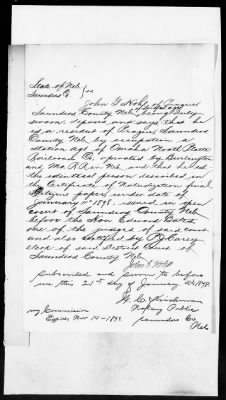 State of Neb
Saunders Co } ss
John G Hohl of Prague
Saunders County Neb, being duly
sworn, deposes and says that he
is a resident of Prague Saunders
County Neb, by occupation a
station agt of Omaha North Platte
Railroad Co, operated by Burlington
and Mo R R in Neb, and that he is
the identical person described in
the Certificate of Naturalization, final
Citizens paper under date of
January 1898, issued in open
court of Saunders County Neb
before the Hon. Edward Bates
one of the judges of said court
and also certified by
clerk of said District Court of
Saunders County Neb
John G Hohl
Subscribed and sworn to before
me this 21st day of January 1898
Notary Public
my Commission
Expires Nov 14-1899
Saunders Co
Neb